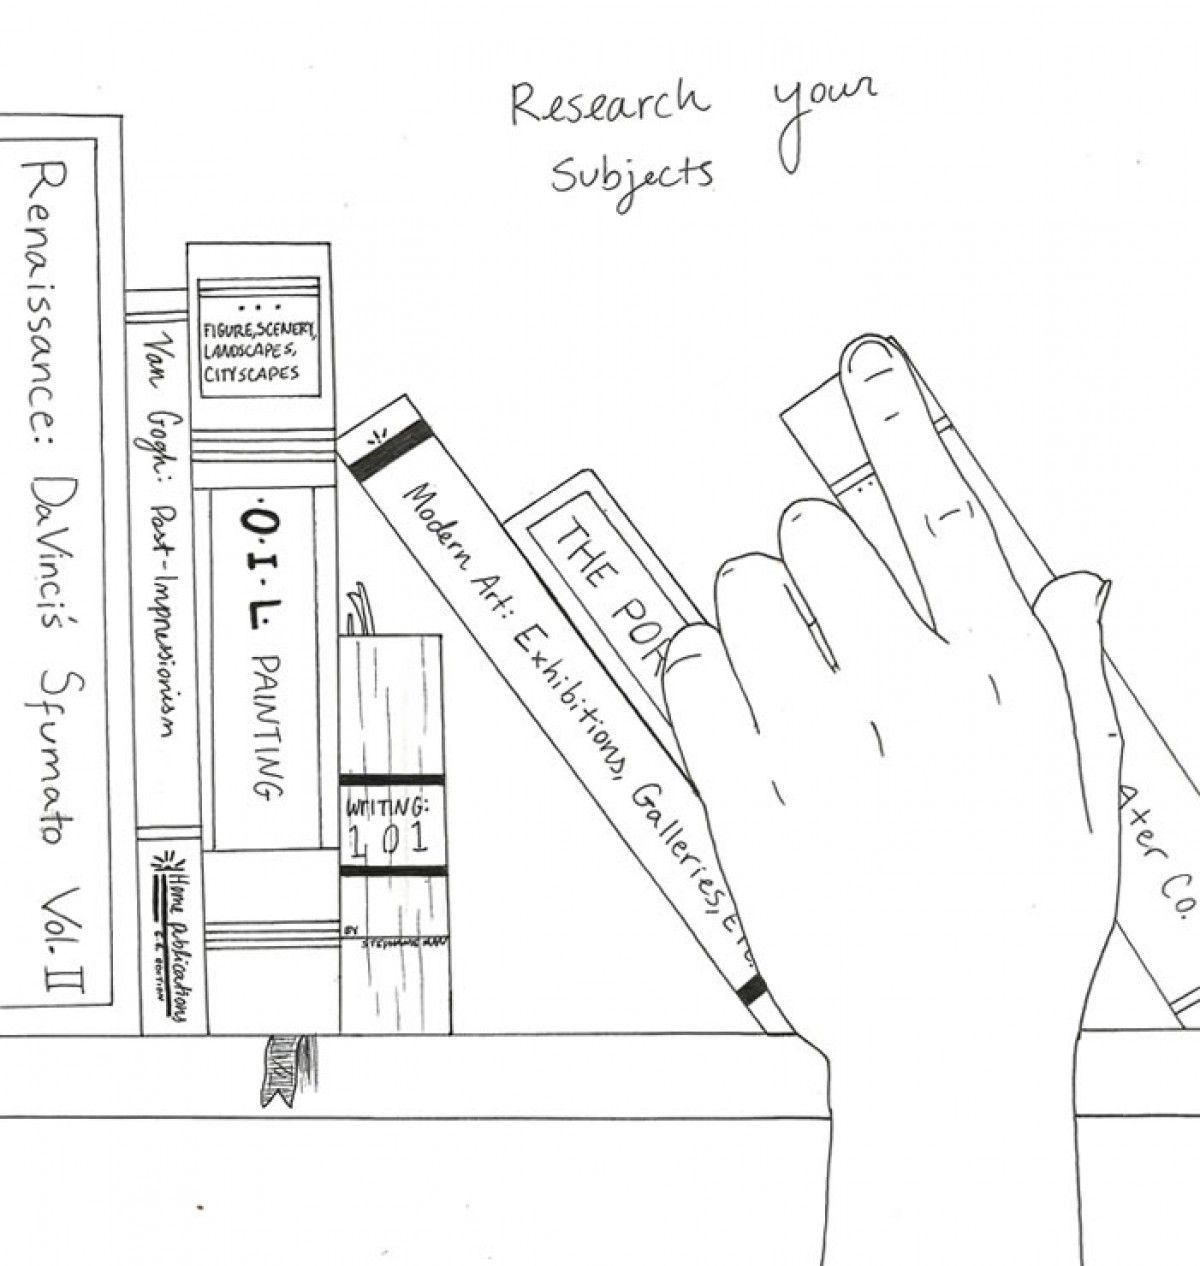 Research your
Subjects
Renaissance: DaVinci's Sfumato Vol. II
Van Gogh: Post-Impressionism
Home publications
EDITION
FIGURE, SCENERY,
LANDSCAPES,
CITYSCAPES
·O·I·L· PAINTING
WRITING:
101
BY
STEPHANIE
Modern Art: Exhibitions, Galleries, Etc.
THE POR
ater Co.